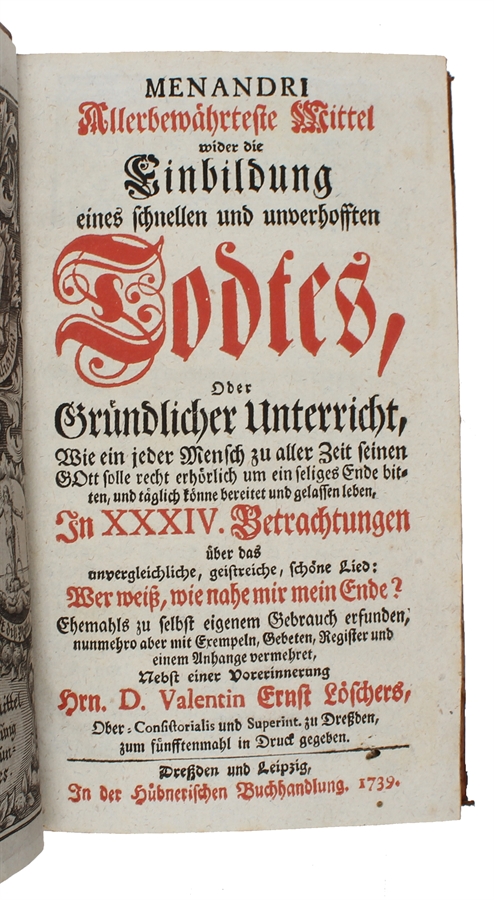 MENANDRI
Allerbewährteste Mittel
wider die
Einbildung
eines schnellen und unverhofften
Todtes,
Oder
Gründlicher Unterricht,
Wie ein jeder Mensch zu aller Zeit seinen
GOtt solle recht erhörlich um ein seliges Ende bit-
ten, und täglich könne bereitet und gelassen leben,
In XXXIV. Betrachtungen
über das
unvergleichliche, geistreiche, schöne Lied:
Wer weiß, wie nahe mir mein Ende?
Ehemahls zu selbst eigenem Gebrauch erfunden,
nunmehro aber mit Exempeln, Gebeten, Register und
einem Anhange vermehret,
Nebst einer Vorerinnerung
Hrn. D. Valentin Ernst Löschers,
Ober-Consistorialis und Superint. zu Dreßden,
zum fünfftenmahl in Druck gegeben.
Dreßden und Leipzig,
In der Hübnerischen Buchhandlung. 1739.